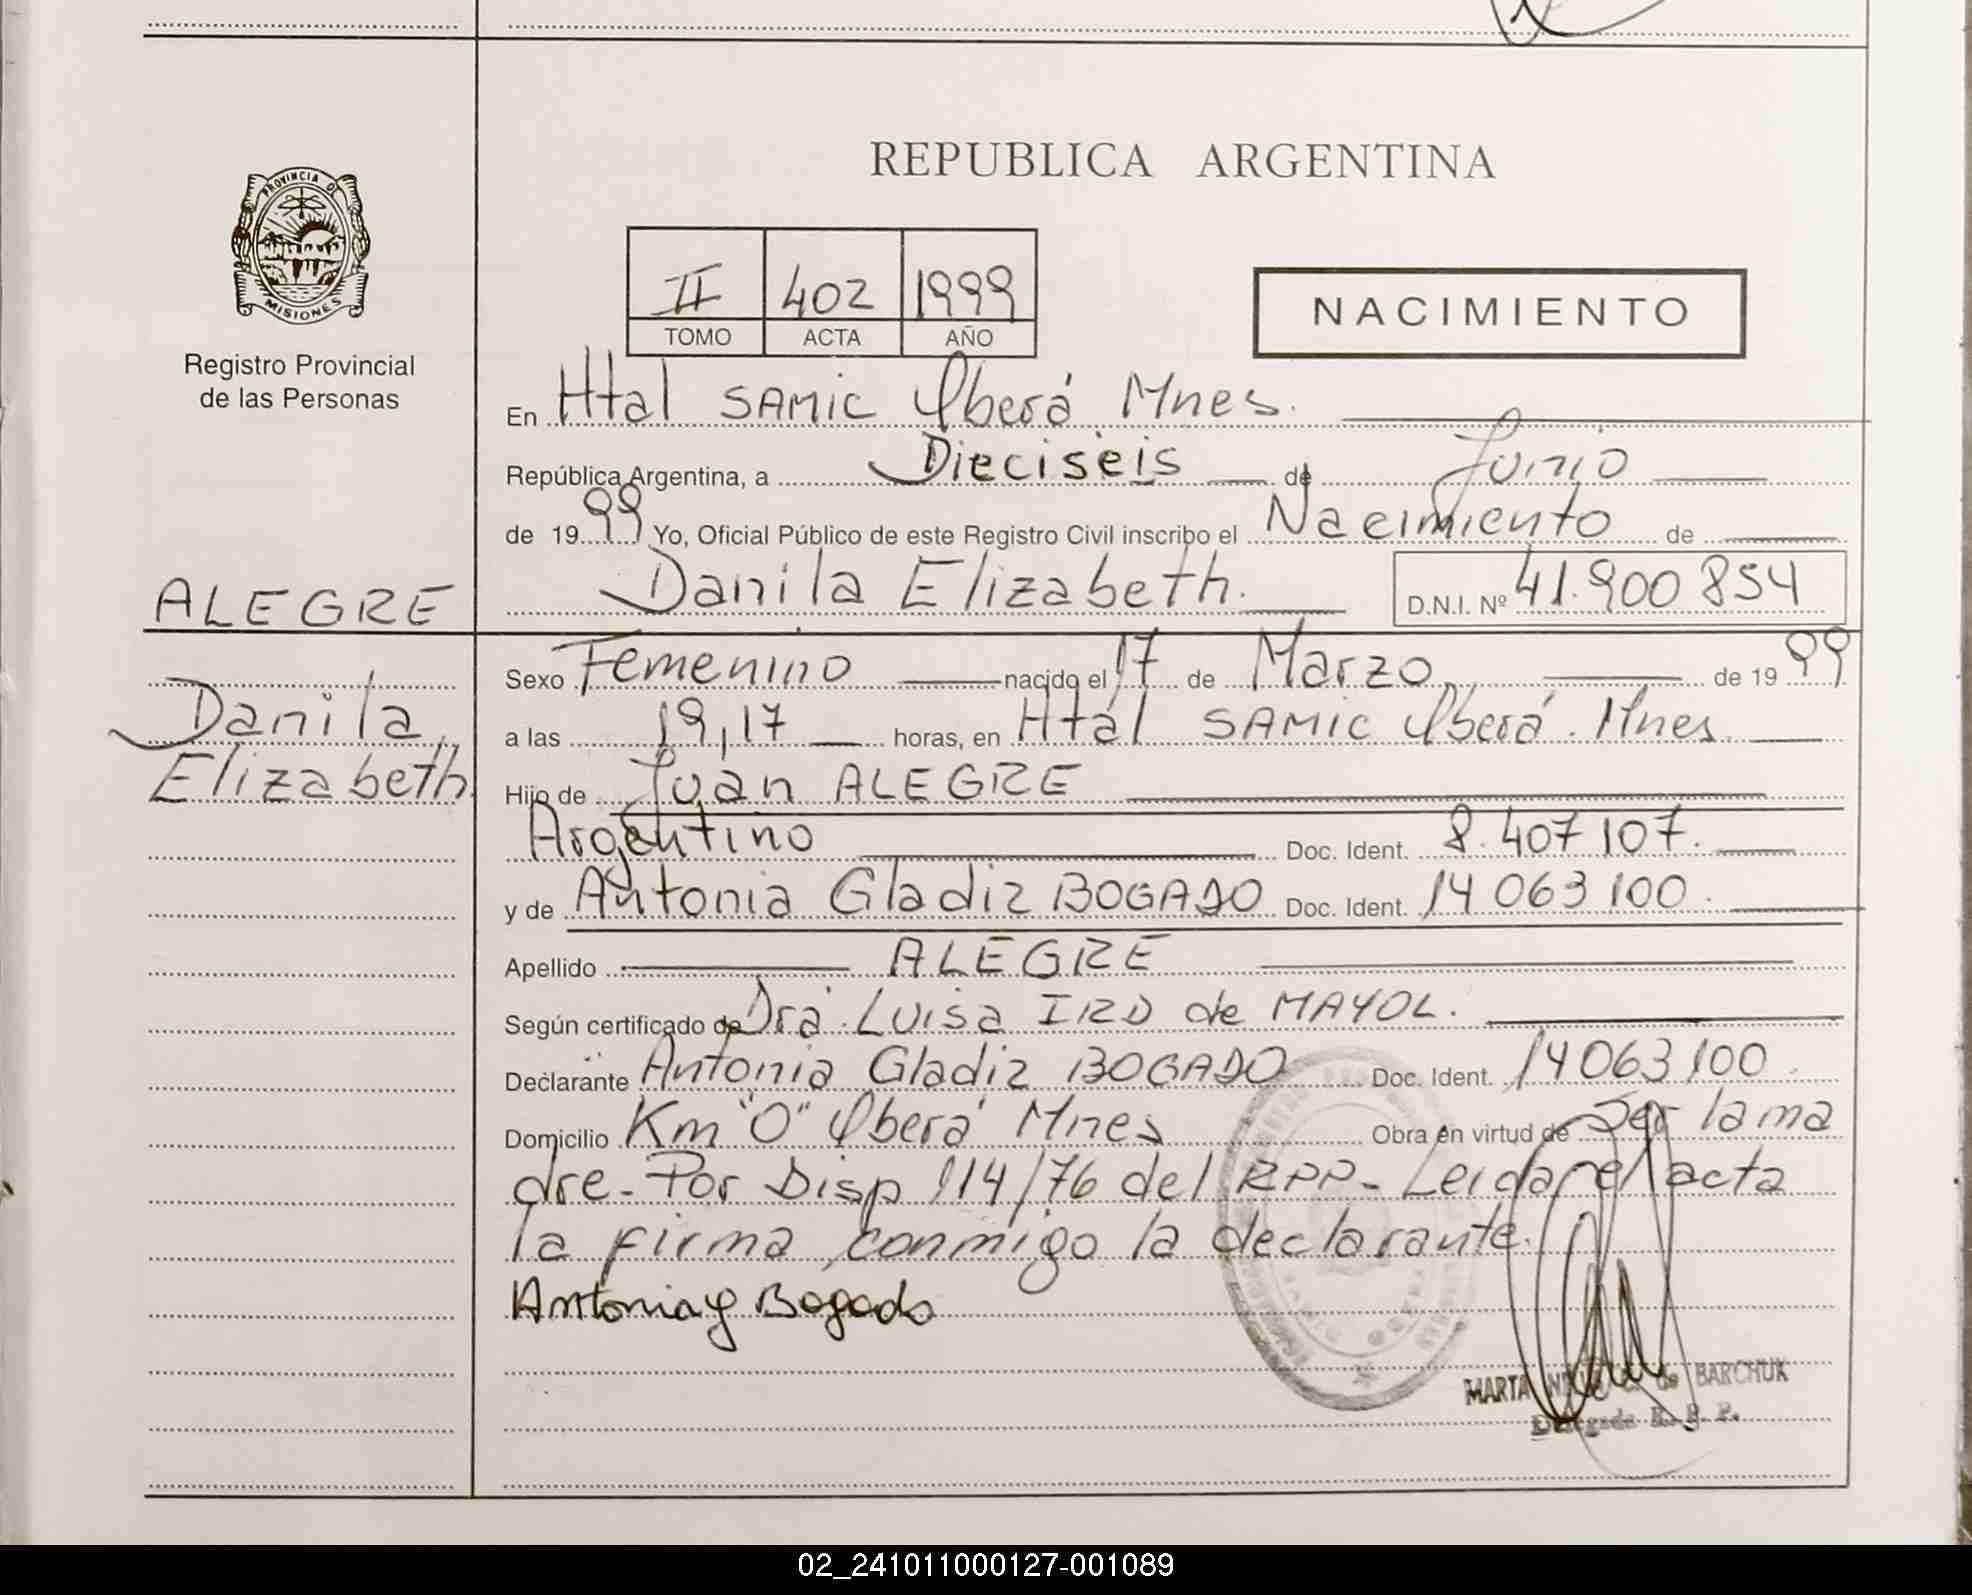 REPUBLICA ARGENTINA
PROVINCIA DE
MISIONES
Registro Provincial
de las Personas
II 402 1999
TOMO ACTA AÑO
NACIMIENTO
En Htal SAMIC Oberá Mnes.
República Argentina, a Dieciseis de Junio
de 1999 Yo, Oficial Público de este Registro Civil inscribo el Nacimiento de
Danila Elizabeth. D.N.I. Nº 41.900 854
ALEGRE
Danila
Elizabeth
Sexo Femenino nacido el 17 de Marzo de 1999
a las 19,17 horas, en Htal SAMIC Oberá. Mnes
Hijo de Juan ALEGRE
Argentino Doc. Ident. 8.407 107.
y de Antonia Gladiz BOGADO Doc. Ident. 14 063 100.
Apellido ALEGRE
Según certificado de Dra. Luisa IRD de MAYOL.
Declarante Antonia Gladiz BOGADO Doc. Ident. 14 063 100.
Domicilio Km "0" Oberá Mnes Obra en virtud de Ser la ma
dre - Por Disp 114/76 del RPP - Leida el acta
la firma conmigo la declarante.
Antonia g Bogado
MARTA de BARCHUK
Delegada R. P. P.
02_241011000127-001089